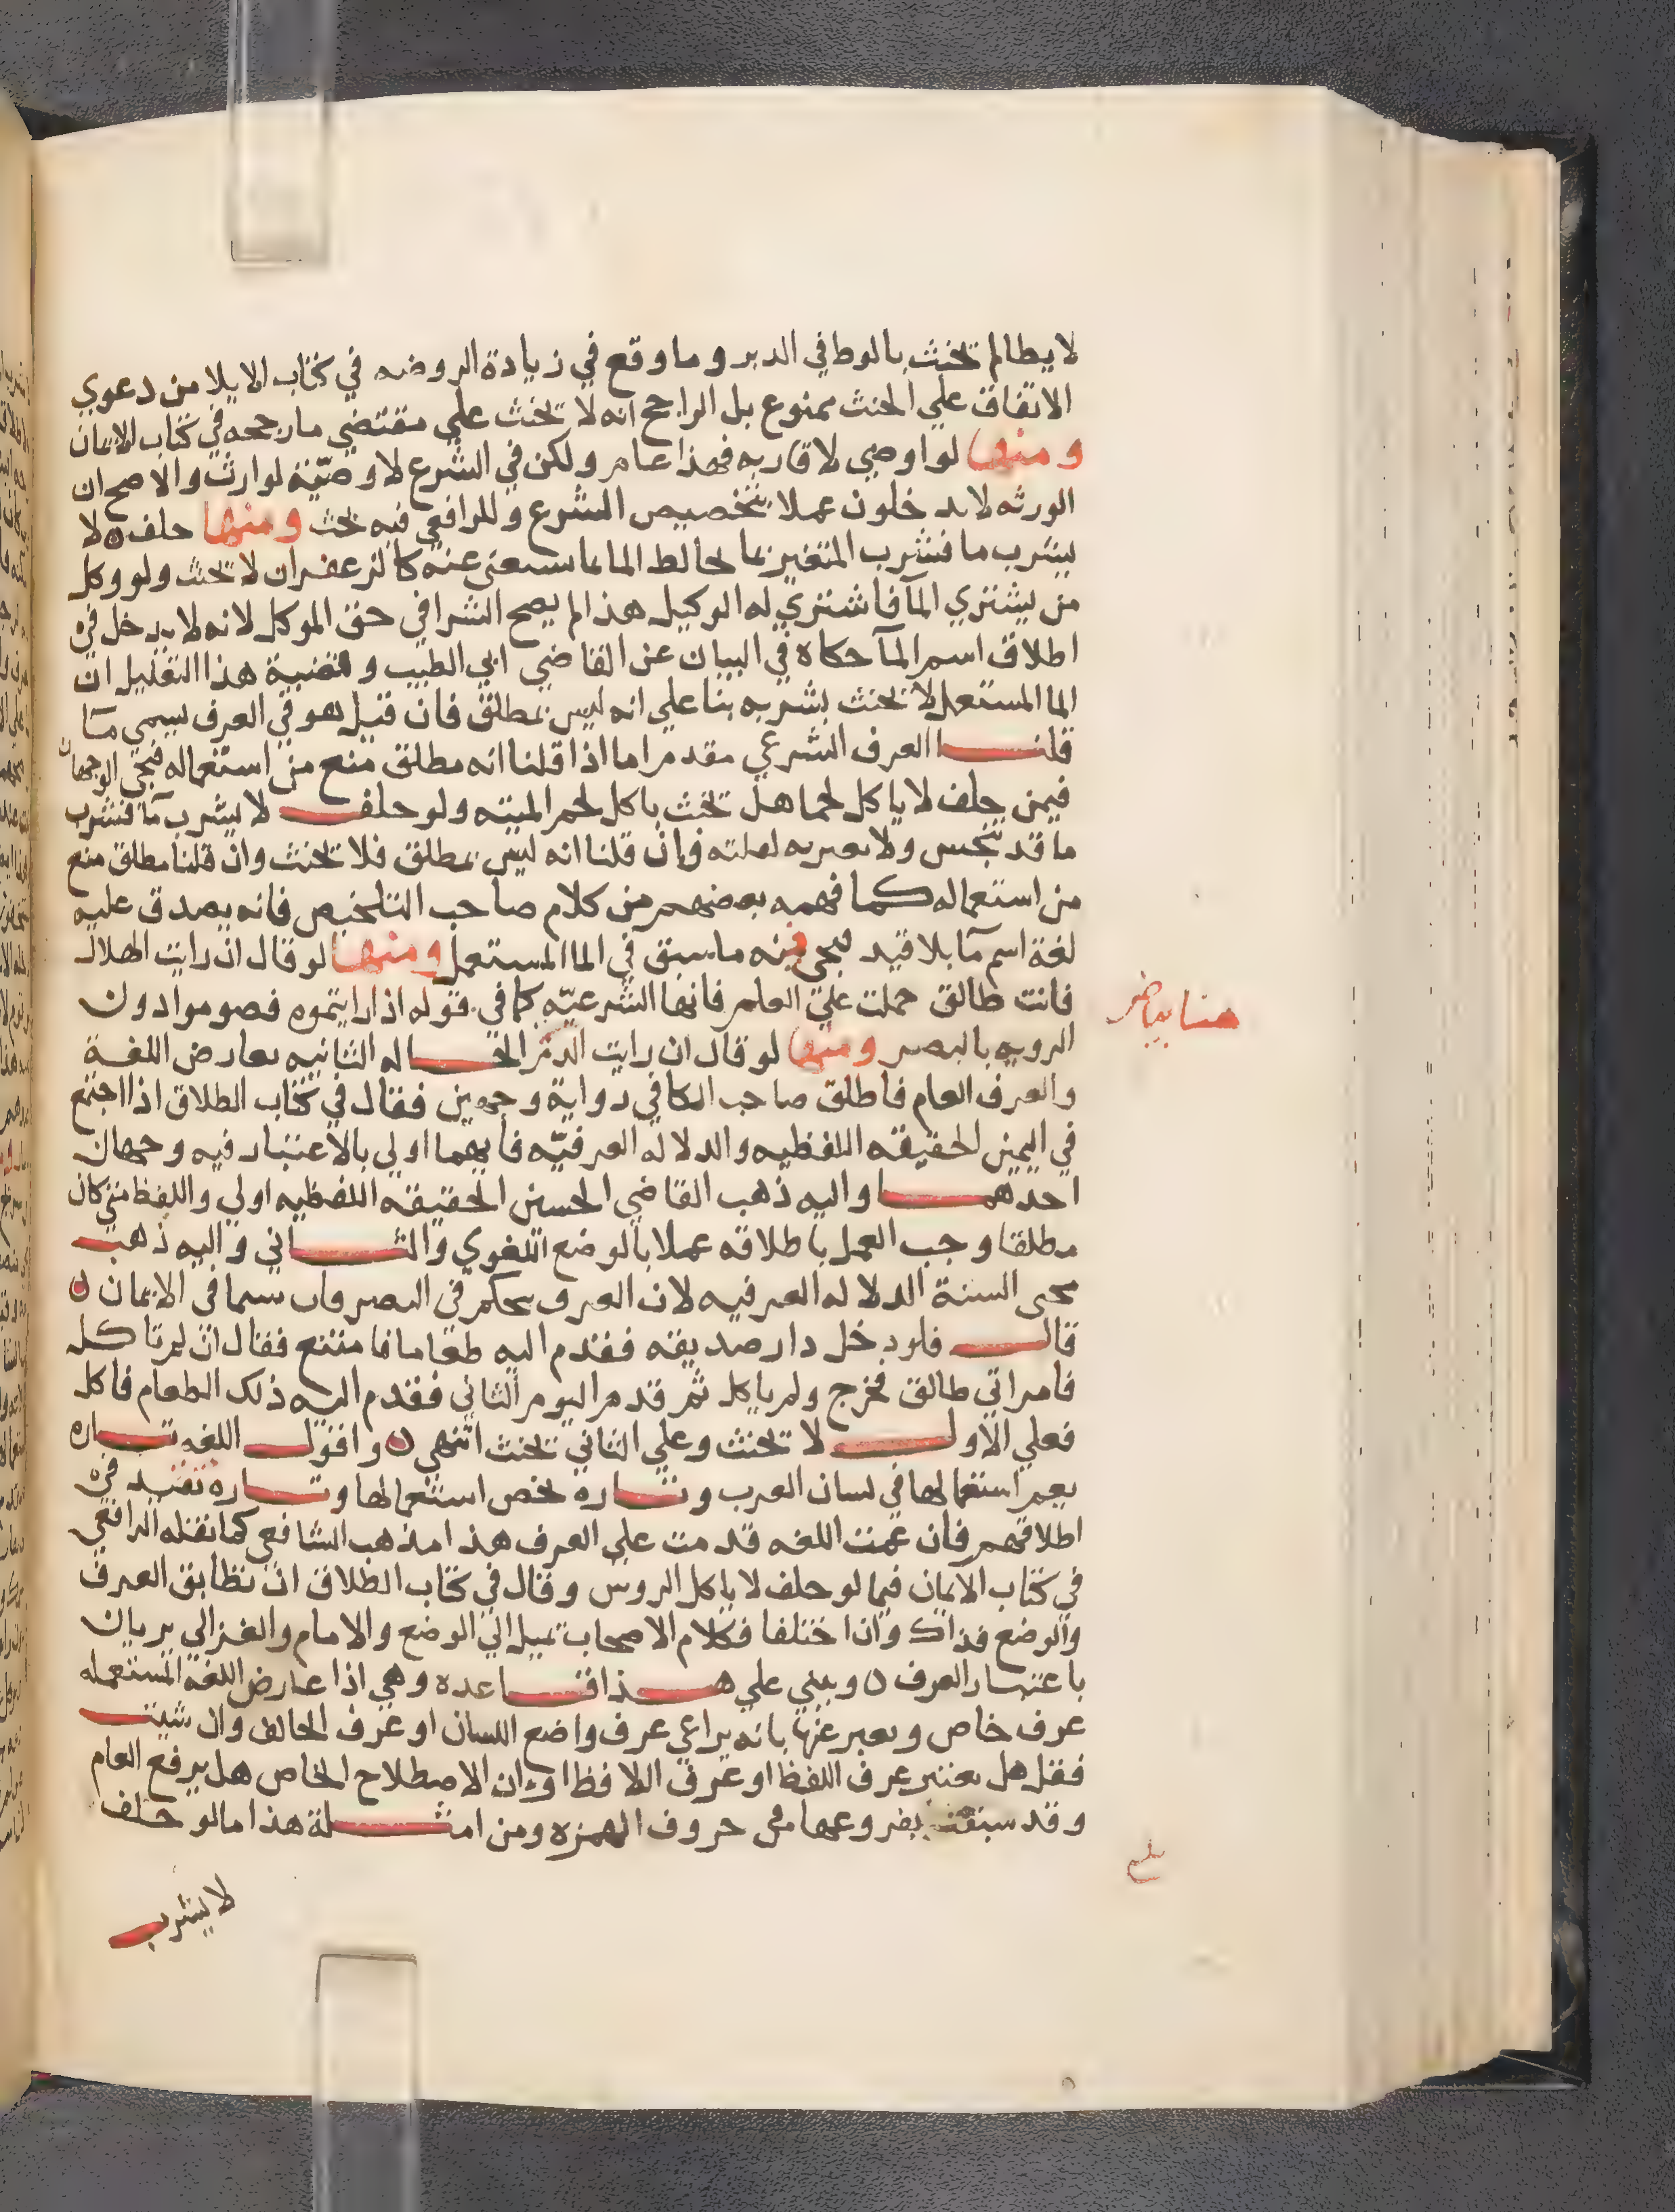 لا يطا لم تحنث بالوطا في الدبر وما وقع في زيادة الروضه في كتاب الايلا من دعوي
الاتفاق علي الحنث ممنوع بل الراجح انه لا تحنث علي مقتضي ما رجحه في كتاب الايمان
ومنها لو اوصي لاقاربه فهذا عام ولكن في الشرع لا وصيّة لوارث والاصح ان
الورثه لا يدخلون عملا بتخصيص الشرع وللرافعي فيه بحث ومنها حلف لا
يشرب ما فشرب المتغير بما يخالط الما مما يستغني عنه كالزعفران لا تحنث ولو وكل
من يشتري المآ فاشتري له الوكيل هذا لم يصح الشرا في حق الموكل لانه لا يدخل في
اطلاق اسم المآ حكاه في البيان عن القاضي ابي الطيب وقضية هذا التعليل ان
الما المستعمل لا تحنث بشربه بنا علي انه ليس بمطلق فان قيل هو في العرف يسمي مآ
قلنا العرف الشرعي مقدم اما اذا قلنا انه مطلق منع من استعماله فيجي الوجهان
فيمن حلف لا ياكل لحما هل تحنث باكل لحم الميته ولو حلف لا يشرب مآ فشرب
ما قد تنجس ولا يعبر به لعلته فان قلنا انه ليس بمطلق فلا تحنث وان قلنا مطلق منع
من استعماله كما فهمه بعضهم من كلام صاحب التلخيص فانه يصدق عليه
لغة اسم مآ بلا قيد فيجي فيه ما سبق في الما المستعمل ومنها لو قال ان رايت الهلال
فانت طالق حملت علي العلم فانها الشرعيّه كما في قوله اذا رايتموه فصوموا دون
هنا بياض
الرويه بالبصر ومنها لو قال ان رايت الدم الحاله الثانيه تعارض اللغة
والعرف العام فاطلق صاحب الكافي رواية وجهين فقال في كتاب الطلاق اذا اجتمع
في اليمين الحقيقه اللفظيه والدلاله العرفيّه فايهما اولي بالاعتبار فيه وجهان
احدهما واليه ذهب القاضي الحسين الحقيقه اللفظيه اولي واللفظ متي كان
مطلقا وجب العمل باطلاقه عملا بالوضع اللغوي والثاني واليه ذهب
محيي السنة الدلاله العرفيه لان العرف يحكم في التصرفات سيما في الايمان ن
قال فلو دخل دار صديقه فقدم اليه طعاما فامتنع فقال ان لم تاكل
فامراتي طالق فخرج ولم ياكل ثم قدم اليوم الثاني فقدم اليه ذلك الطعام فاكل
فعلي الاول لا تحنث وعلي الثاني تحنث انتهي ن واقول اللغه تاره
يعم استعمالها في لسان العرب وتاره يخص استعمالها وتاره تقيد في
اطلاقهم فان عمت اللغه قدمت علي العرف هذا مذهب الشافعي كما نقله الرافعي
في كتاب الايمان فيما لو حلف لا ياكل الروس وقال في كتاب الطلاق ان تطابق العرف
والوضع فذاك وان اختلفا فكلام الاصحاب تميل الي الوضع والامام والغزالي يريان
باعتبار العرف ن ويبني علي هذا قاعده وهي اذا عارض اللغه المستعمله
عرف خاص ويعبر عنها بانه يراعي عرف واضع اللسان او عرف الحالف وان شيت
فقل هل يعتبر عرف اللفظ او عرف اللافظ او ان الاصطلاح الخاص هل يرفع العام
وقد سبقت بفروعها في حروف الهمزه ومن امثلة هذا ما لو حلف
بلغ
لا يشرب